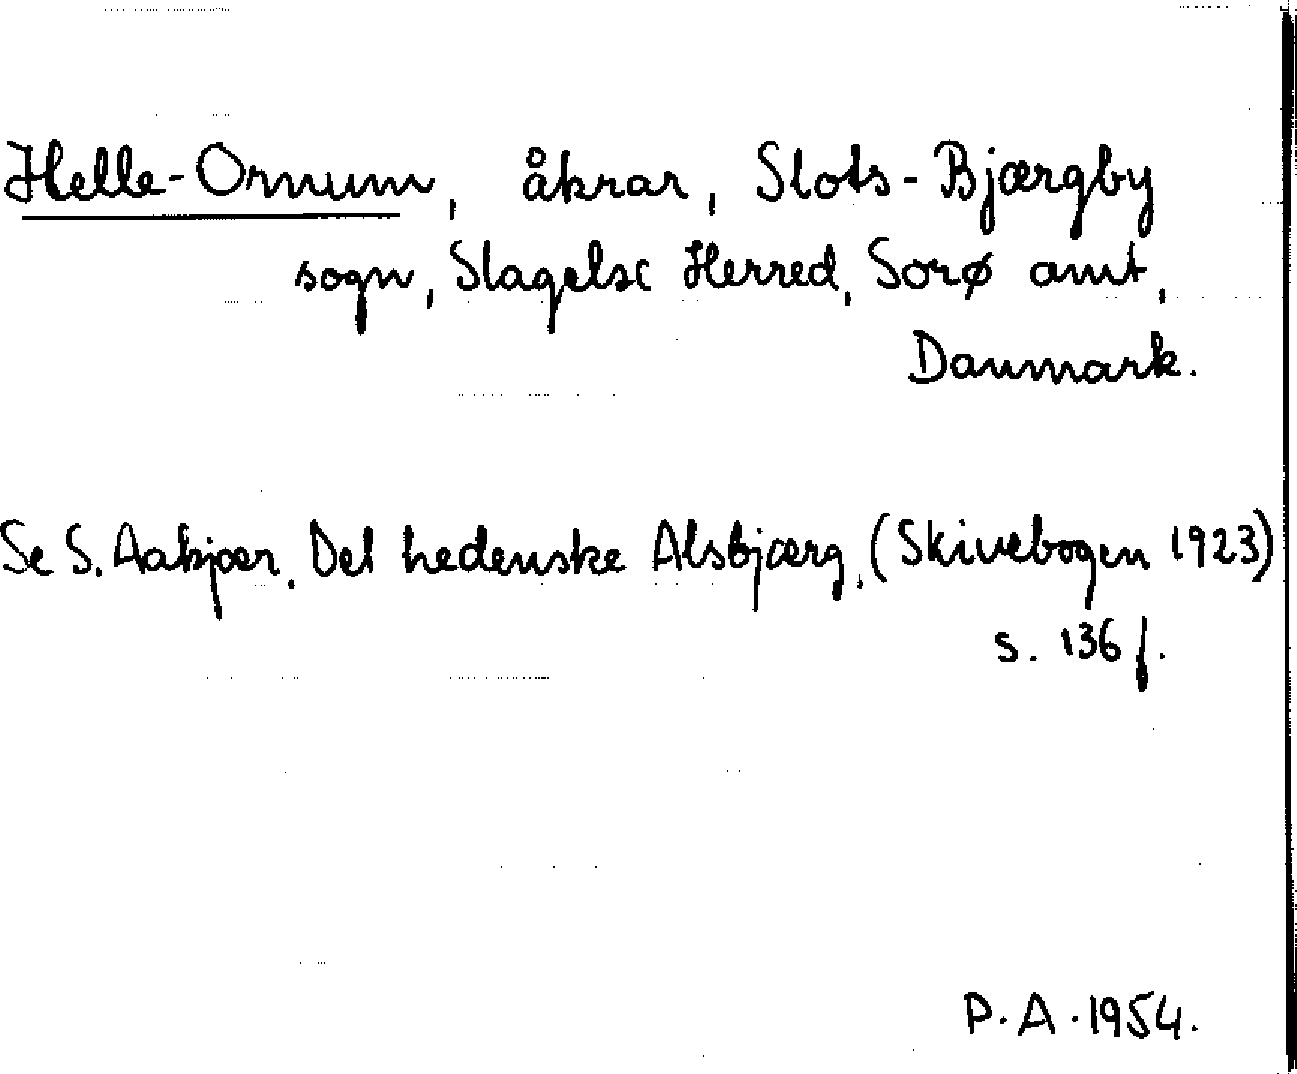 Helle-Ornum, åkrar, Slots-Bjærgby
sogn, Slagelse Herred, Sorø amt,
Danmark.
Se S. Aakjær. Det hedenske Alsbjærg, (Skivebogen 1923)
s. 136 f.
P.A. 1954.